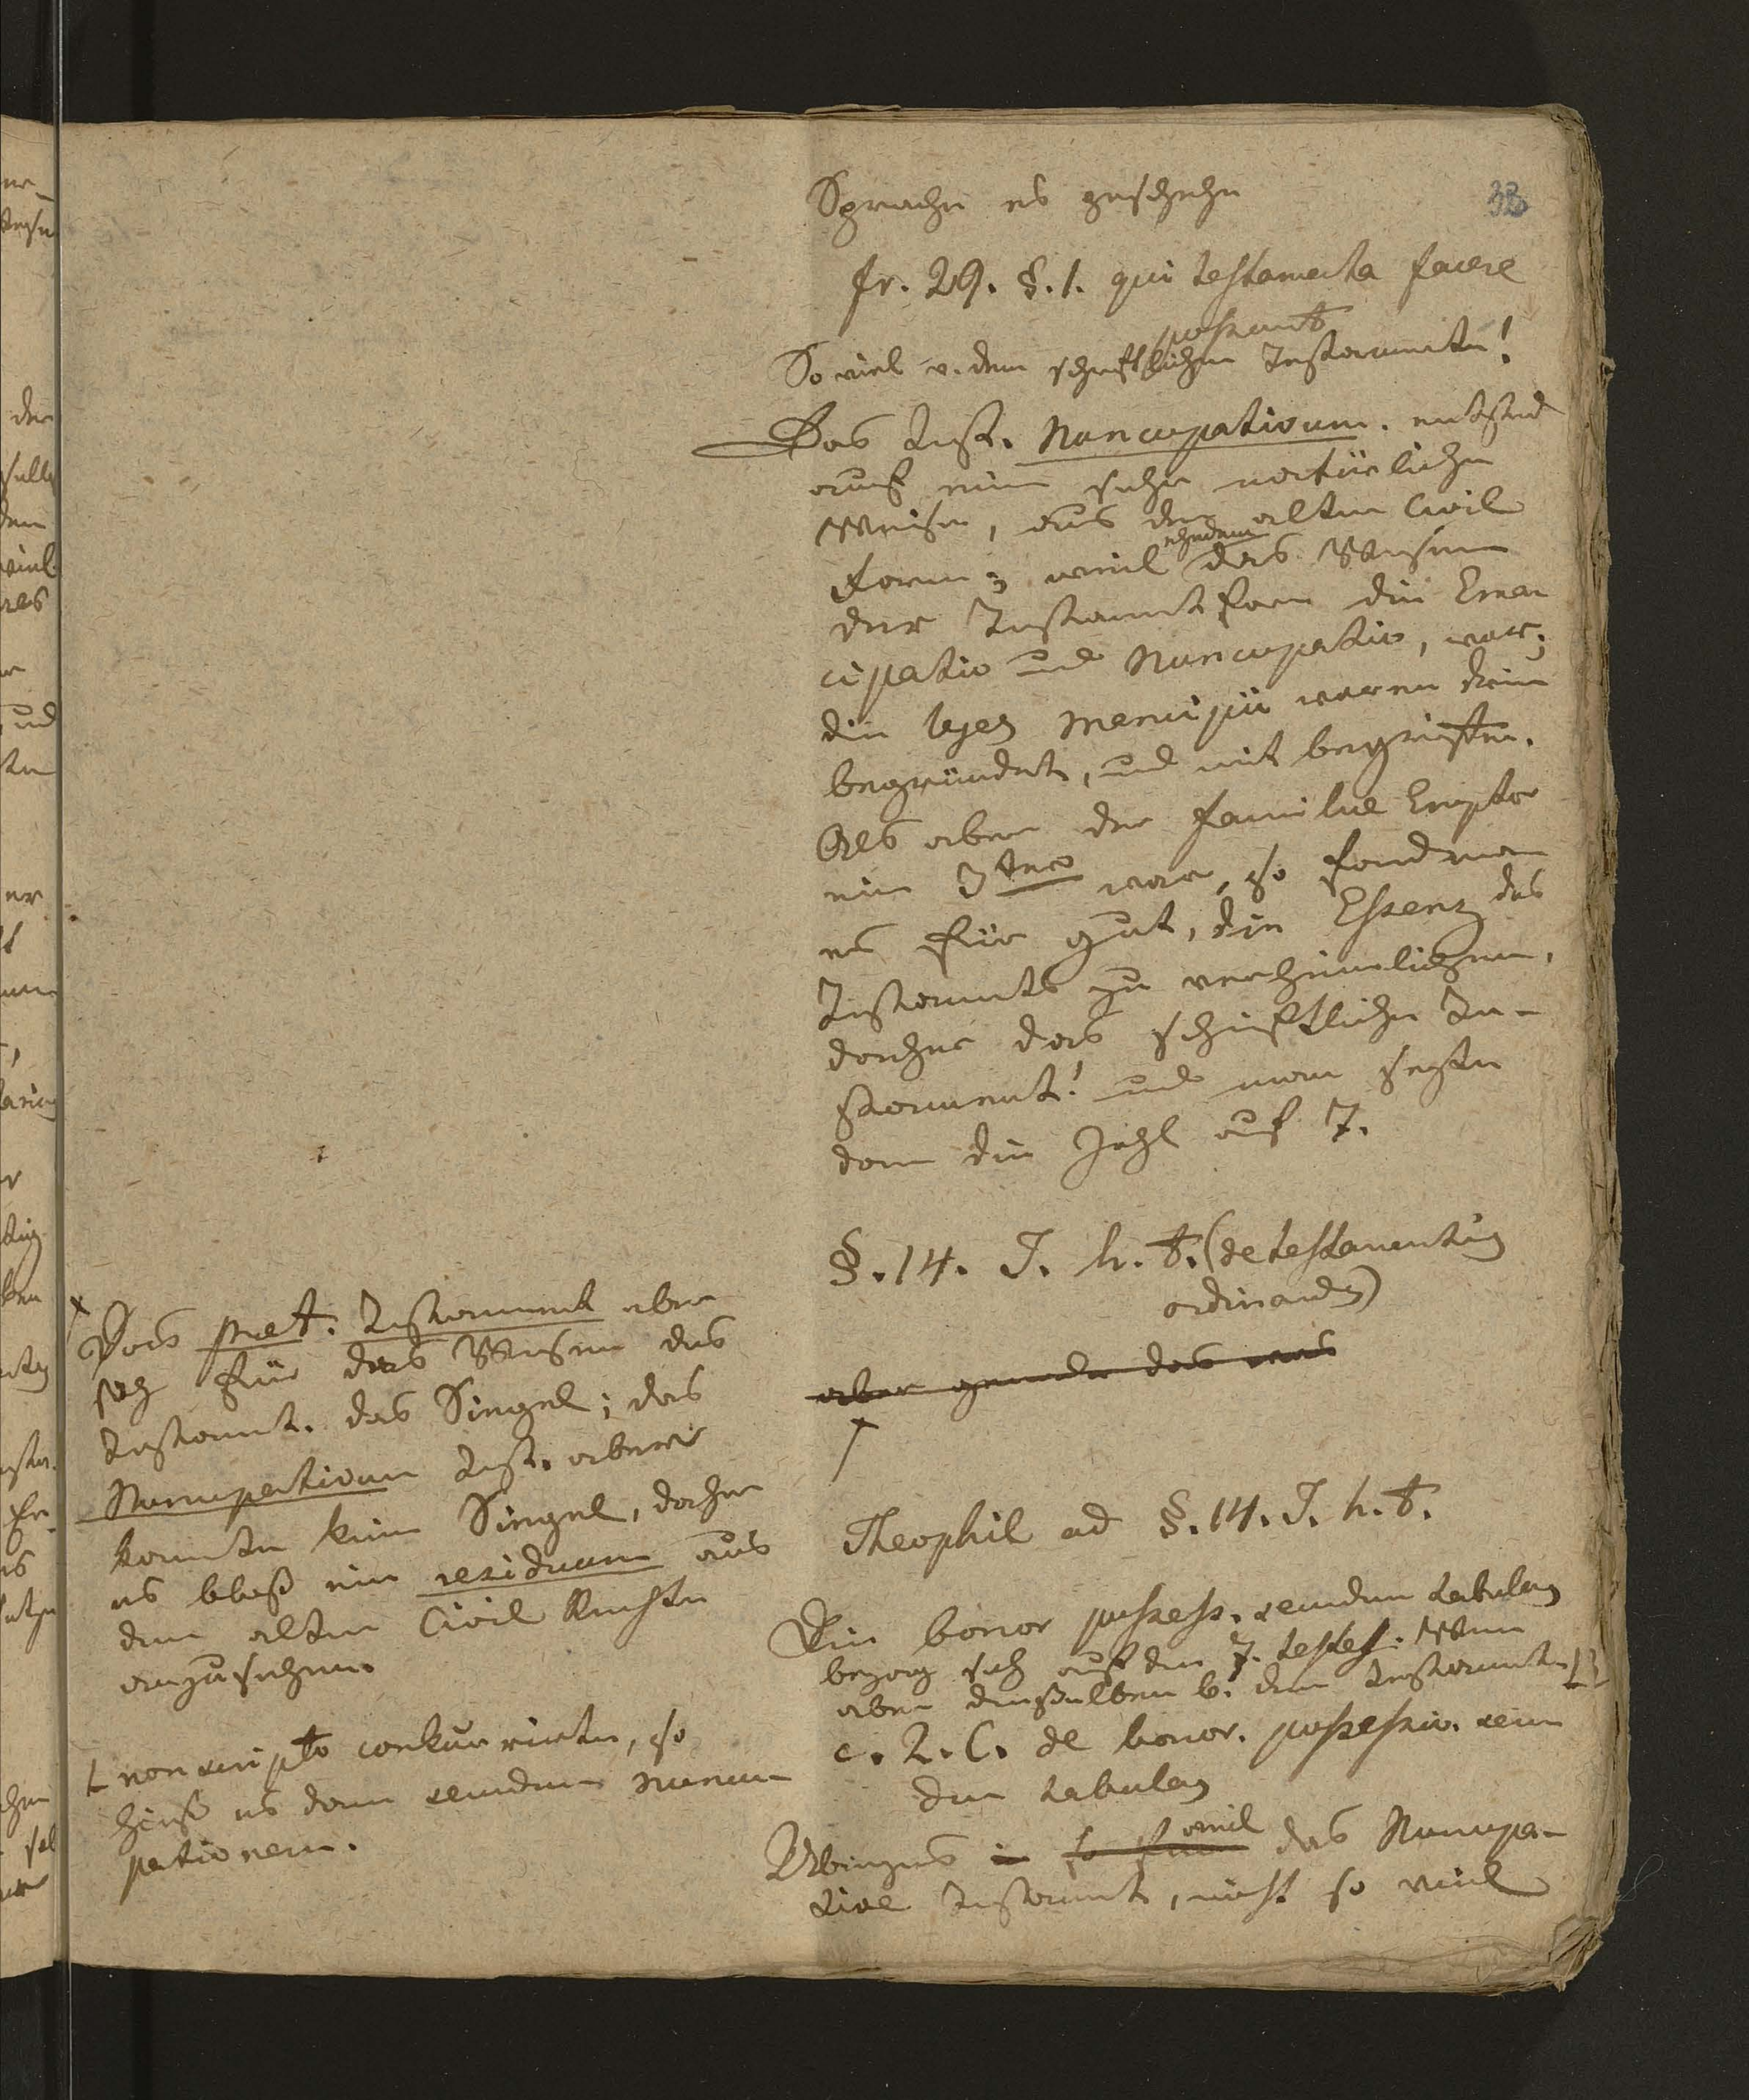 38
Sprache es geschehe
fr. 29. §. 1. qui testamenta facere
possunt
So viel v. dem schriftlichen Testamente!
Das Test. Nuncupativum. entstand
auf eine sehr natürliche
Weise, aus der alten Civil
ehedem
Form; weil das Wesen
der Testamentform die Eman
cipatio und Nuncupatio, war;
die leges mancipii waren drin
begründet, und mit begriffen.
Als aber der familiae Emptor
ein 3ter war, so fand man
es für gut, die Essenz des
Testaments zu verheimlichen,
daher das schriftliche Te-
stament! und man setzte
dann die Zahl auf 7.
§. 14. I. h. t. (de testamentis
ordinandis)
aber gerade das was
Theophil ad §. 14. I. h. t.
Die bonor possess. secundum tabulas
bezog sich auf den 7. testes. Wenn
aber dieselben b. dem Testamente
c. 2. C. de bonor. possessio. secun
dum tabulas
Übrigens weil das Nuncupa-
tive Testament, nicht so viel
x
Das praet. Testament aber
sah für das Wesen des
Testament. das Siegel; das
Nuncupativum Test. aber
konnte kein Siegel, daher
es bloß ein residuum aus
dem alten Civil Rechte
anzusehen.
non scripto conkurrirten, so
hieß es dann secundum nuncu
pationem.